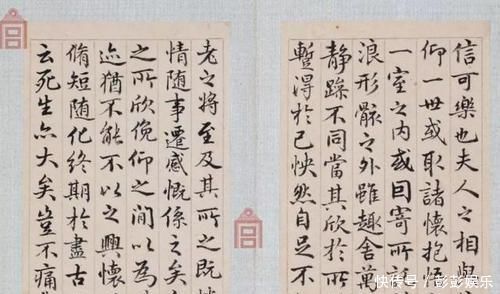 信可樂也夫人之相與
仰一世或取諸懷抱
一室之内或因寄所
浪形骸之外雖趣舍萬
静躁不同當其欣於所
蹔得於己怏然自足不
老之將至及其所之既
情随事遷感慨係之矣
之所欣俛仰之間以為
迹猶不能不以之興懷
脩短随化終期於盡古
云死生亦大矣豈不痛
快传号/彭彭娱乐